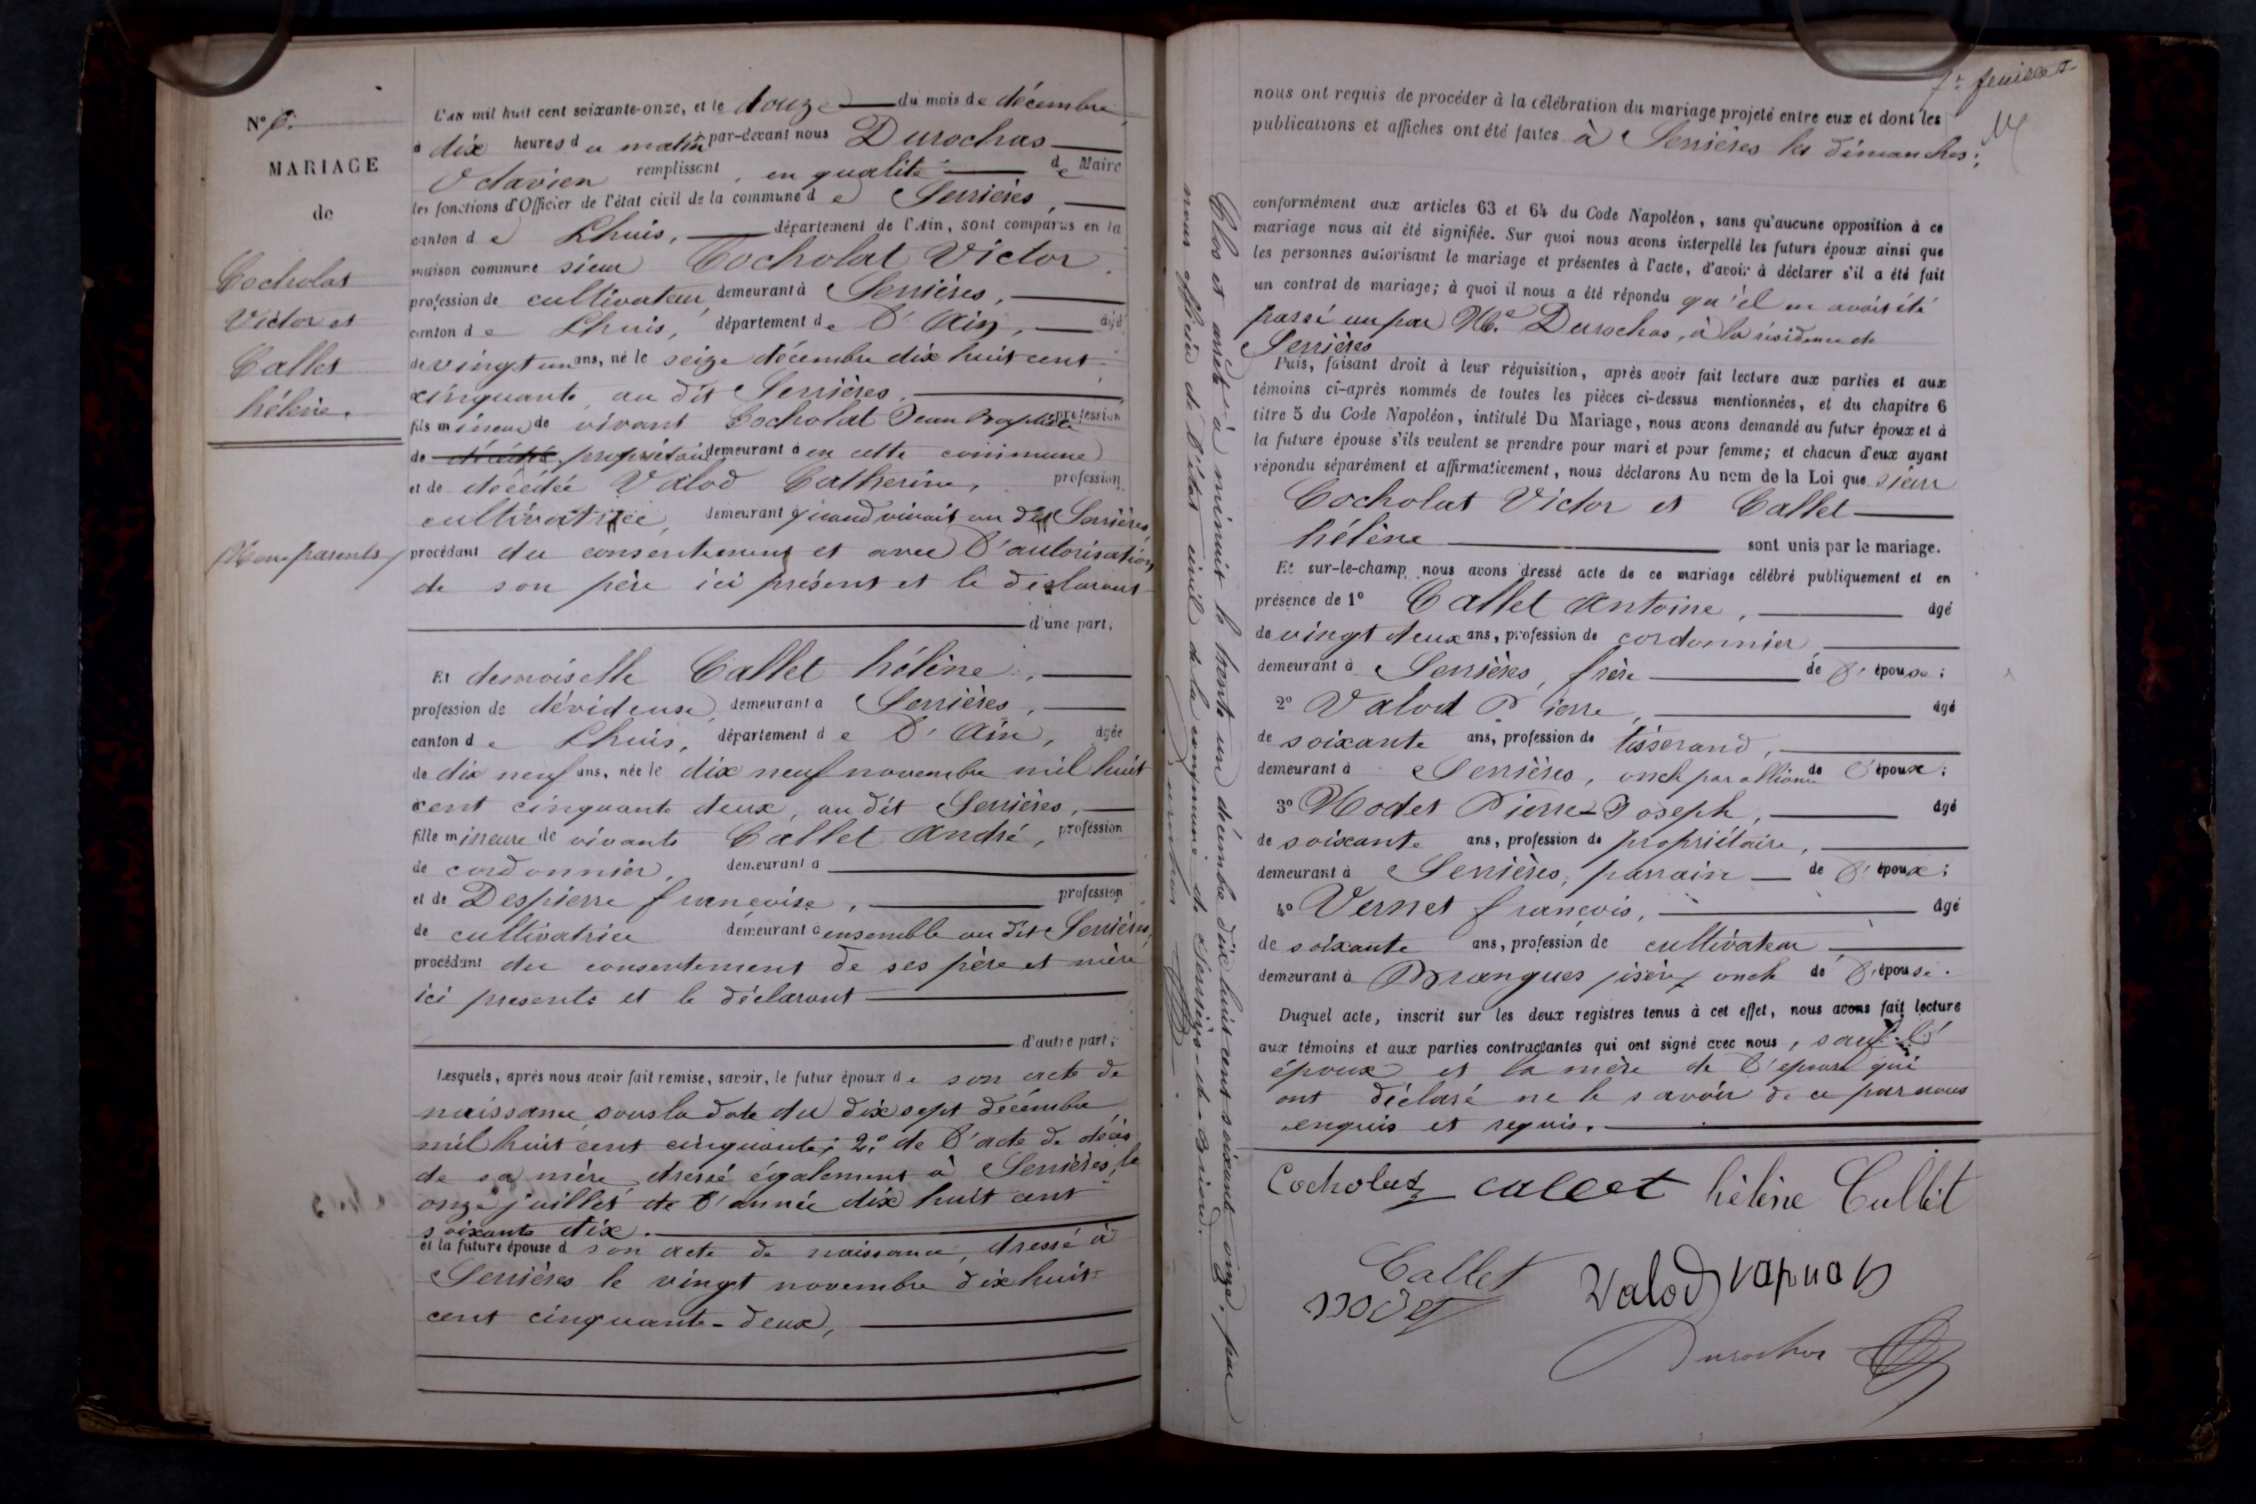 N° 6.
MARIAGE
de
Cocholat
Victor et
Callet
hélène.
Non parents
L'an mil huit cent soixante-onze, et le douze du mois de décembre
à dix heures du matin par-devant nous Durochas
Octavien remplissant, en qualité de Maire
les fonctions d'Officier de l'état civil de la commune de Serrières,
canton de Lhuis, département de l'Ain, sont comparus en la
maison commune sieur Cocholat Victor.
profession de cultivateur, demeurant à Serrières,
canton de Lhuis, département de l'Ain, âgé
de vingt un ans, né le seize décembre dix huit cent
cinquante, au dit Serrières.
fils mineur de vivant Cocholat Jean Baptiste profession
de propriétaire demeurant à en cette commune
et de décédée Valod Catherine, profession
cultivatrice, demeurant quand vivait au dit Serrières,
procédant du consentement et avec l'autorisation
de son père ici présent et le déclarant
d'une part;
Et demoiselle Callet hélène,
profession de dévideuse, demeurant à Serrières,
canton de Lhuis, département de l'Ain, âgée
de dix neuf ans, née le dix neuf novembre mil huit
cent cinquante deux, au dit Serrières,
fille mineure de vivants Callet André, profession
de cordonnier, demeurant à
et de Despierre françoise, profession
de cultivatrice demeurant à ensemble au dit Serrières,
procédant du consentement de ses père et mère
ici présents et le déclarant
d'autre part;
Lesquels, après nous avoir fait remise, savoir, le futur époux de son acte de
naissance, sous la date du dix sept décembre
mil huit cent cinquante; 2° de l'acte de décès
de sa mère dressé également à Serrières, le
onze juillet de l'année dix huit cent
soixante dix.
et la future épouse d son acte de naissance, dressé à
Serrières le vingt novembre dix huit
cent cinquante-deux,
Clos et arrêté à minuit le trente un décembre dix huit cent soixante onze, par
nous officier de l'état civil de la commune de Serrières-de-Briord.
Durochas
7e feuillet
nous ont requis de procéder à la célébration du mariage projeté entre eux et dont les
publications et affiches ont été faites à Serrières les dimanches;
conformément aux articles 63 et 64 du Code Napoléon, sans qu'aucune opposition à ce
mariage nous ait été signifiée. Sur quoi nous avons interpellé les futurs époux ainsi que
les personnes autorisant le mariage et présentes à l'acte, d'avoir à déclarer s'il a été fait
un contrat de mariage; à quoi il nous a été répondu qu'il en avait été
passé un par Me. Durochas, à la résidence de
Serrières
Puis, faisant droit à leur réquisition, après avoir fait lecture aux parties et aux
témoins ci-après nommés de toutes les pièces ci-dessus mentionnées, et du chapitre 6
titre 5 du Code Napoléon, intitulé Du Mariage, nous avons demandé au futur époux et à
la future épouse s'ils veulent se prendre pour mari et pour femme; et chacun d'eux ayant
répondu séparément et affirmativement, nous déclarons Au nom de la Loi que sieur
Cocholat Victor et Callet
hélène sont unis par le mariage.
Et sur-le-champ nous avons dressé acte de ce mariage célébré publiquement et en
présence de 1° Callet Antoine, âgé
de vingt deux ans, profession de cordonnier,
demeurant à Serrières, frère de l'épouse;
2° Valod Pierre, âgé
de soixante ans, profession de tisserand,
demeurant à Serrières, oncle par alliance de l'époux;
3° Modet Pierre-Joseph, âgé
de soixante ans, profession de propriétaire,
demeurant à Serrières, parrain de l'époux;
4° Vernet françois, âgé
de soixante ans, profession de cultivateur
demeurant à Brangues isère, oncle de l'épouse.
Duquel acte, inscrit sur les deux registres tenus à cet effet, nous avons fait lecture
aux témoins et aux parties contractantes qui ont signé avec nous, sauf l'
époux et la mère de l'épouse qui
ont déclaré ne le savoir de ce par nous
enquis et requis.
Cocholat callet hélène Callet
Callet
modet Valod
Durochas